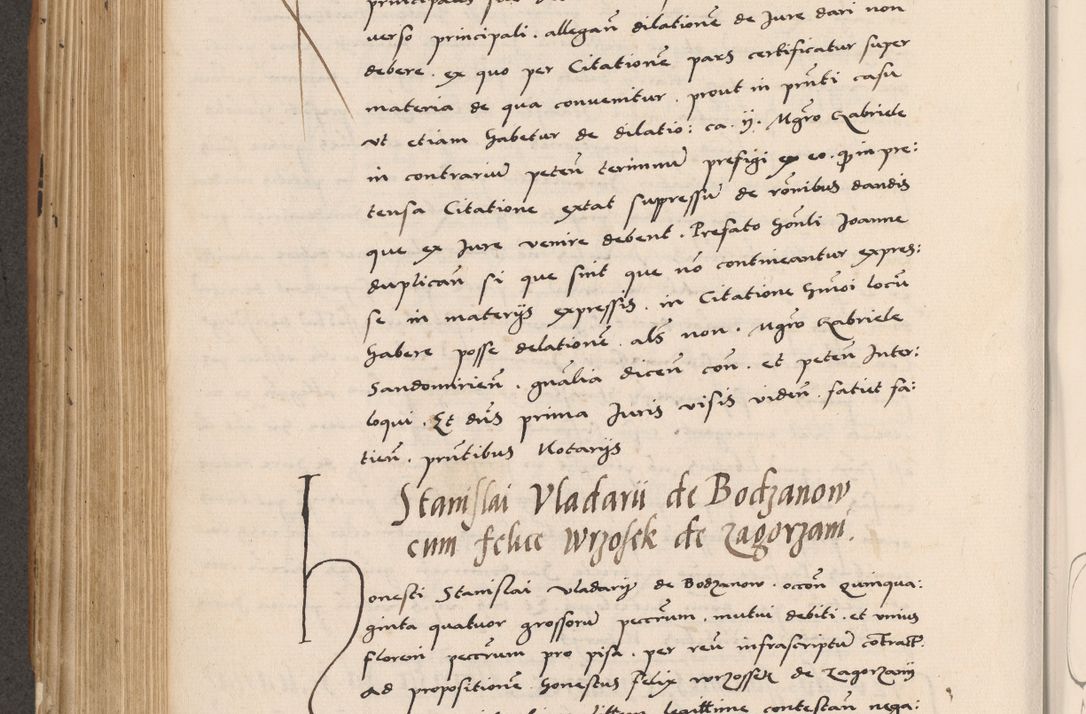 verso principali . allegan̄ dilationē de Jure dari non
debere . ex quo per Citationē pars certificatur super
materia de qua convenitur . prout in pn̄ti casu
vt etiam habetur de dilatio: ca. ij. Mgr̄o Gabriele
in contrariū peten̄ terminū prefigi ex eo . qp̄ in pre:
tensa Citatione extat supressū de rōnibus dandis
que ex Jure venire debent . Prefato hon̄li Joanne
duplican̄ si que sint que nō contineantur expres:
se in materijs expressis . in Citatione hm̄oi locū
habere posse delationē . als̄ non . Mgr̄o Gabriele
Sandomirien̄ . gn̄alia dicen̄ con̄ . et peten̄ Inter:
loqui . Et dn̄s prima Juris visis viden̄ . fatiet fa:
tien̄ . pn̄tibus Notarijs
Stanislai Vladarii de Bodzanow
cum felice Wrzosek de Zagorzani.
Honesti Stanislai Vladarij de Bodzanow . occōn̄ quinqua:
ginta quatuor grossorū peccr̄um . mutui debiti . et unius
floreni peccr̄um pro pisa . per reū infrascriptū contract̄.
ad propositionē honestus felix wrzossek de Zagorzanij
legittime contestan̄ nega: